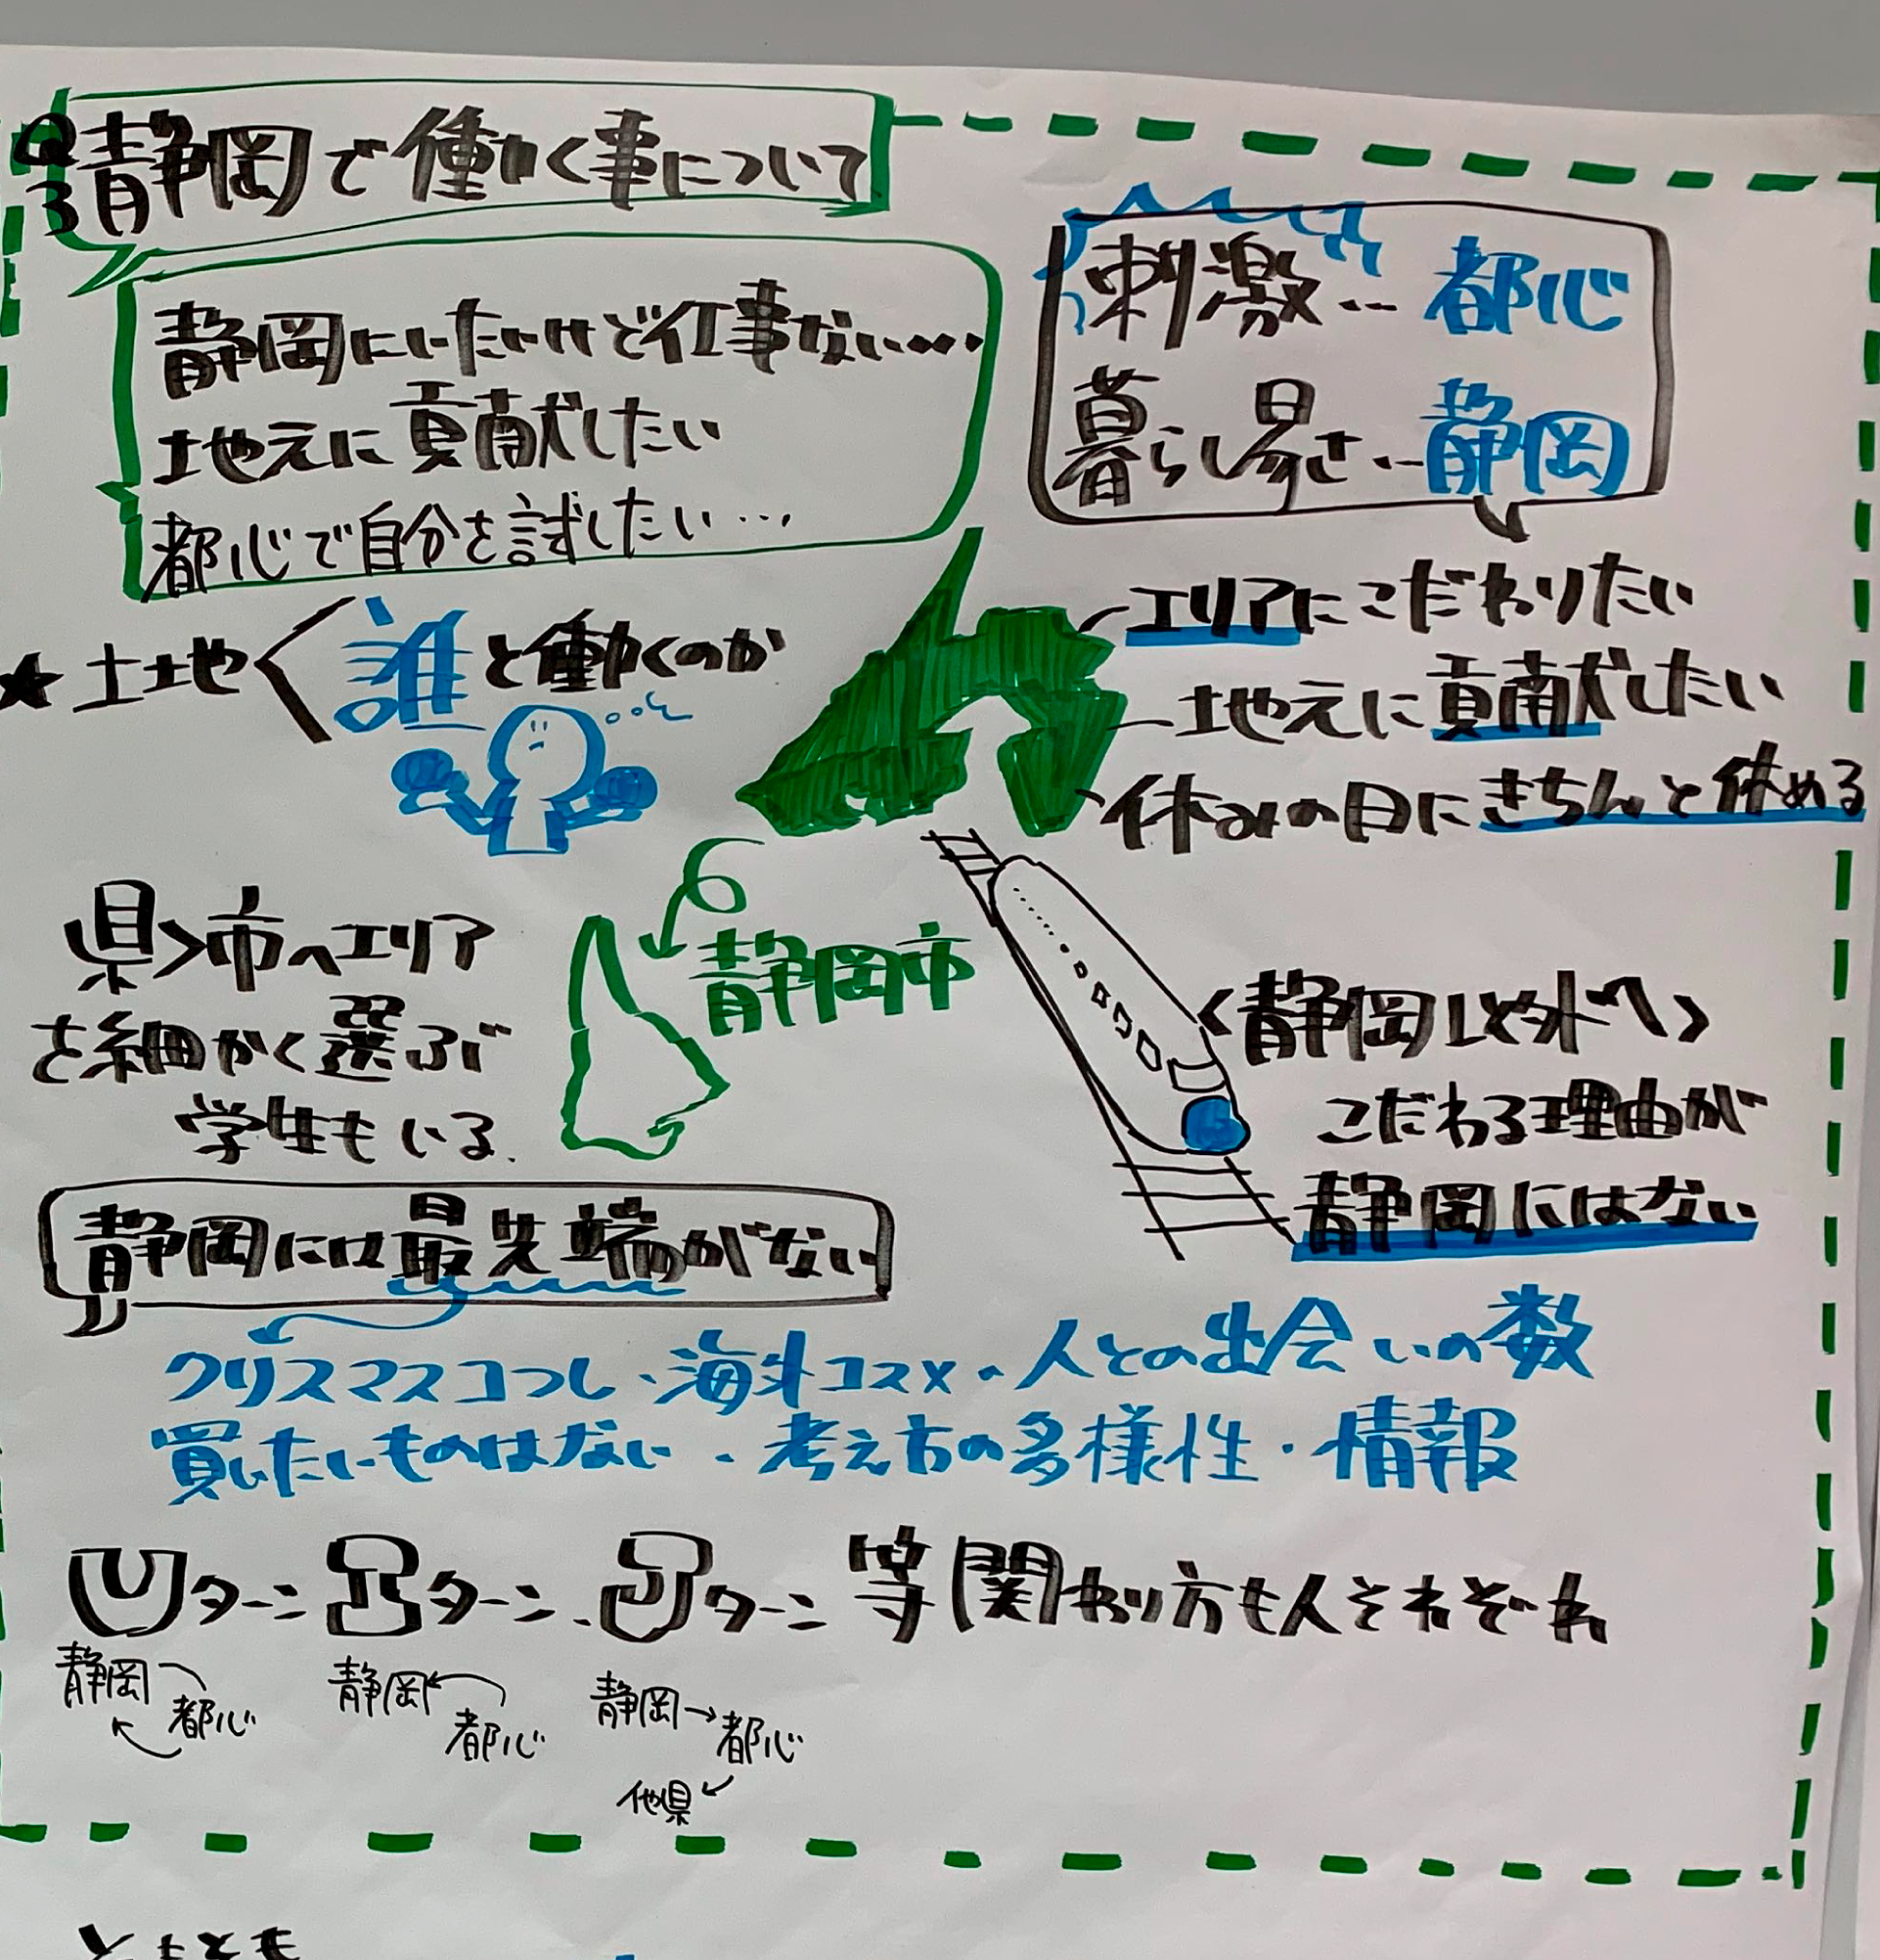 Q3 静岡で働く事について
静岡にいたいけど仕事ない…
地元に貢献したい
都心で自分を試したい…
刺激… 都心
暮らし易さ… 静岡
★ 土地 < 誰と働くのか
エリアにこだわりたい
地元に貢献したい
休みの日にきちんと休める
県>市へエリア
を細かく選ぶ
学生もいる.
静岡市
<静岡以外へ>
こだわる理由が
静岡にはない
静岡には最先端がない
クリスマスコフレ・海外コスメ・人との出会いの数
買いたいものはない・考え方の多様性・情報
Uターン Iターン、Jターン 等 関わり方も人それぞれ
静岡 都心
静岡 都心
静岡→都心
他県